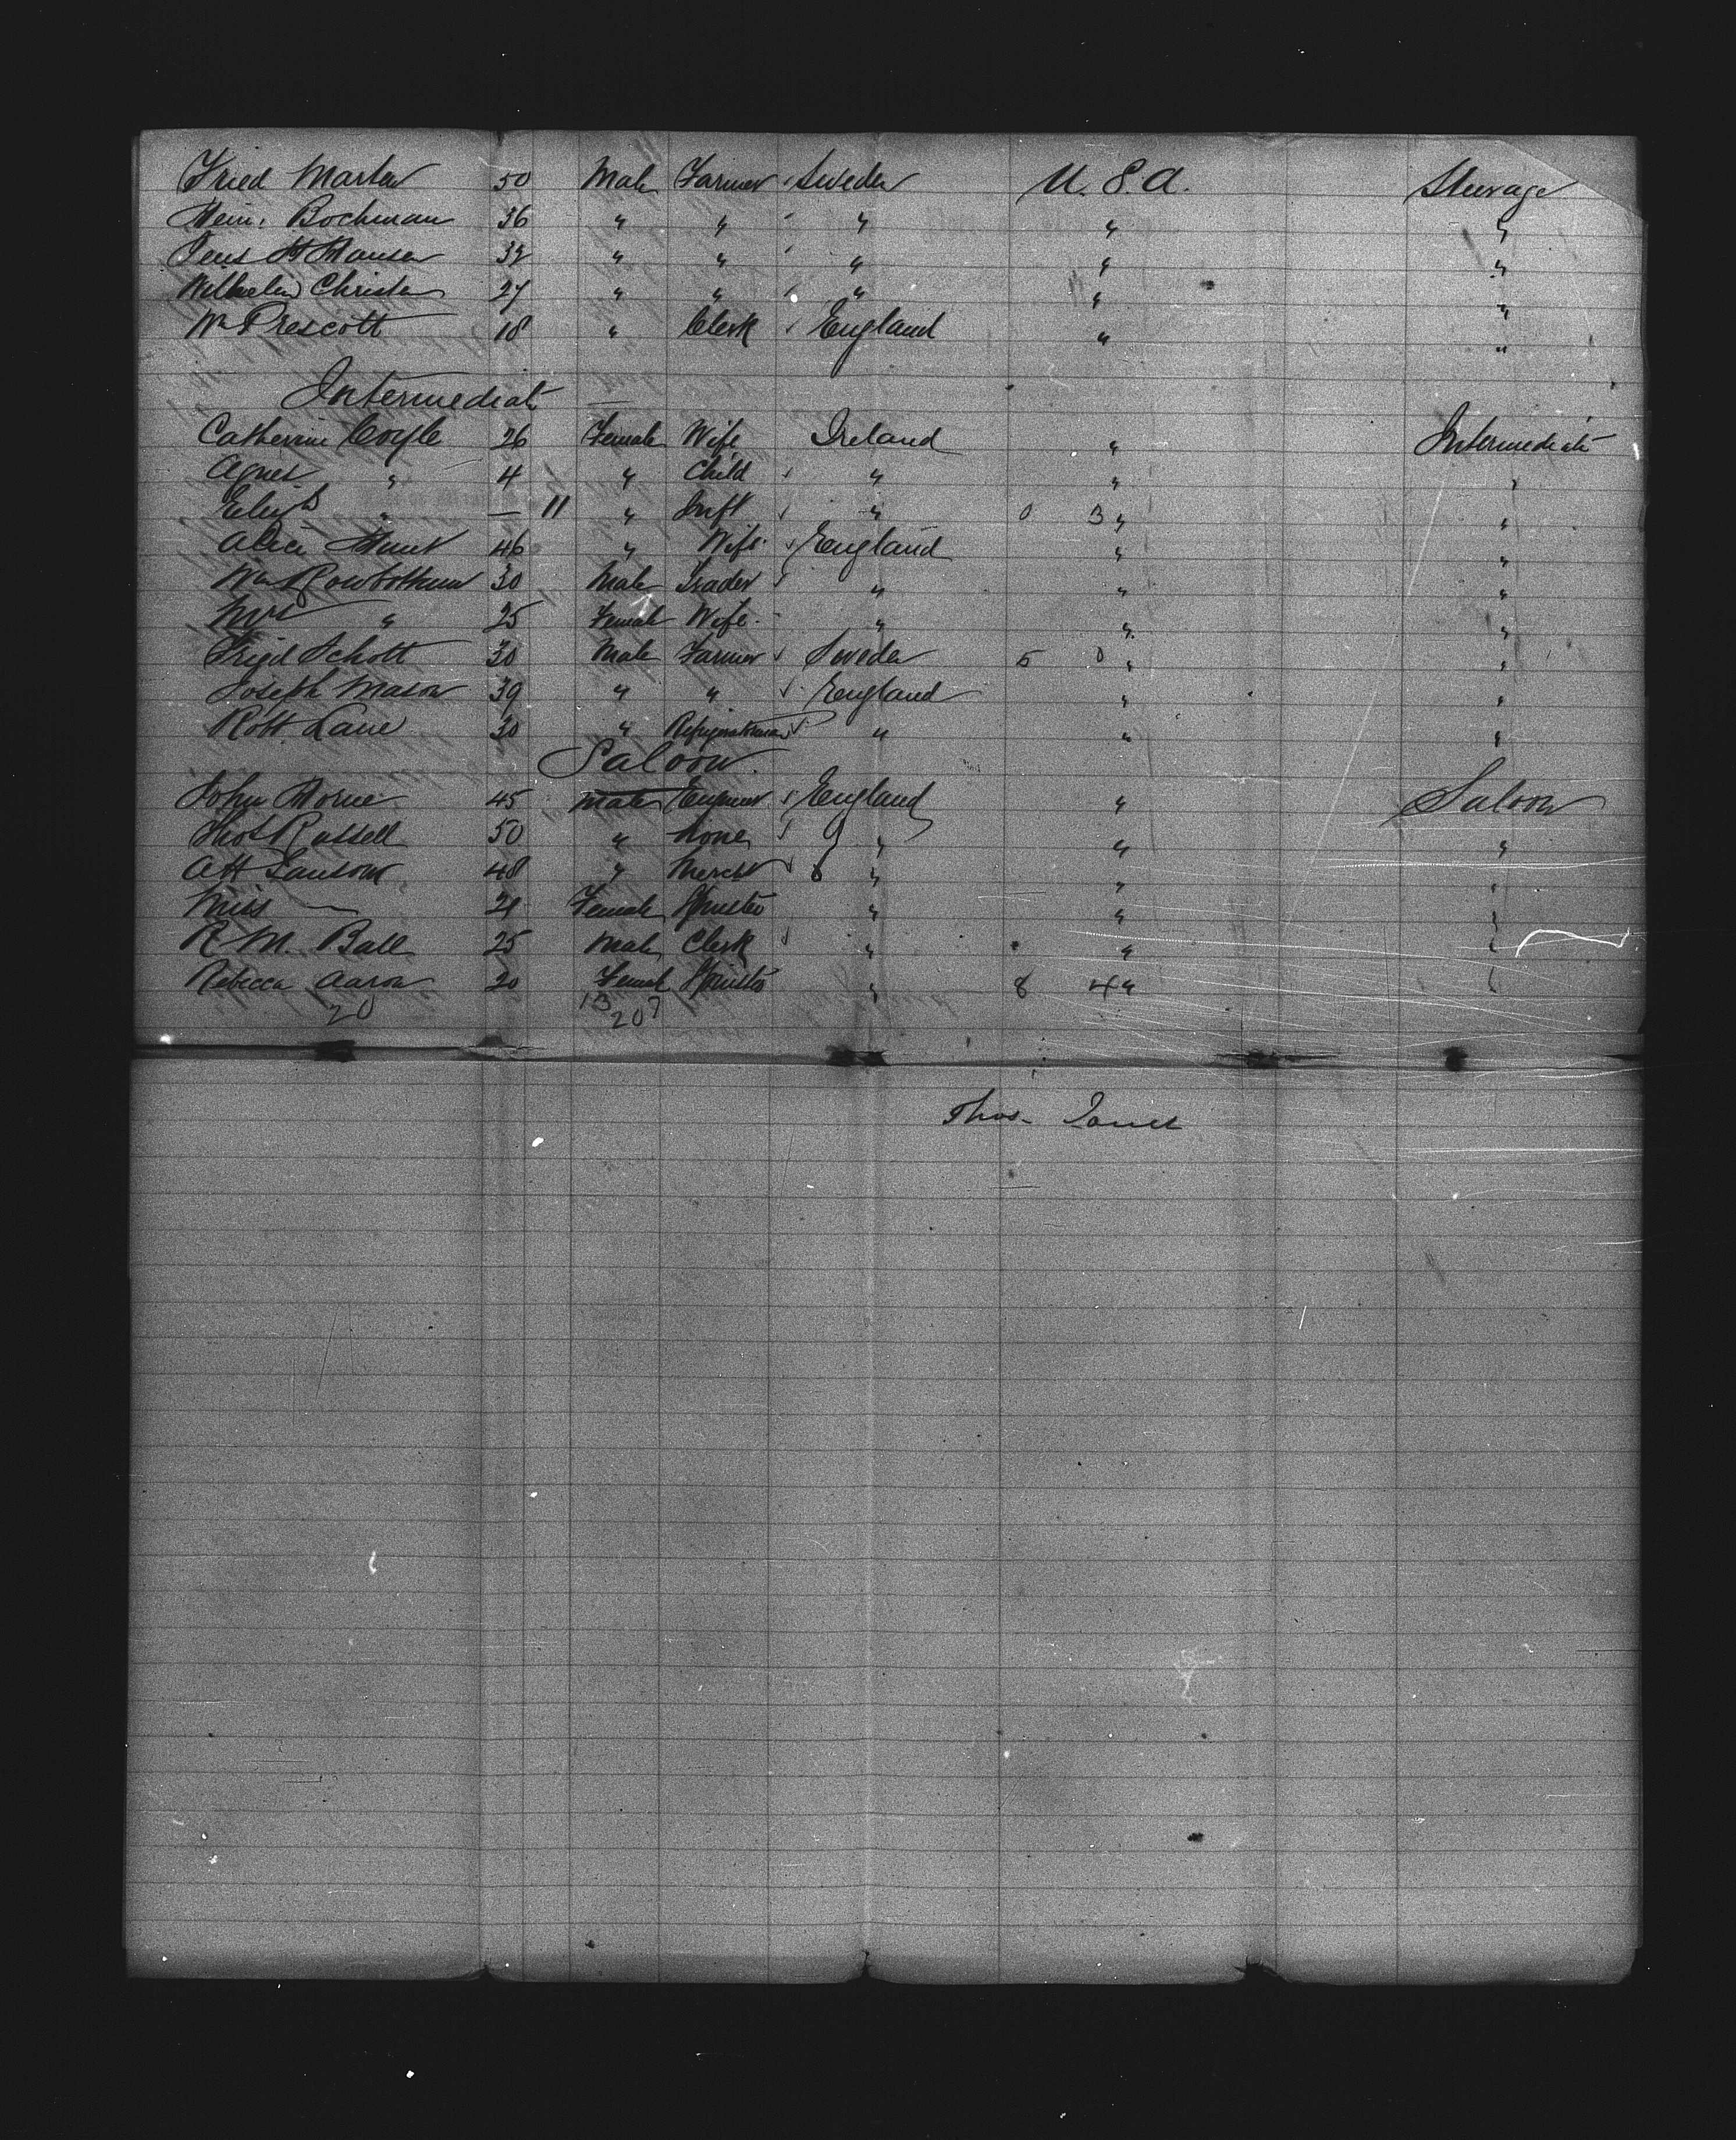 Fried Marten 50 Male Farmer Sweden U.S.A. Steerage
Hein. Bochman 36 " " " " "
Jens H Hansen 32 " " " " "
Wilhelm Christen 27 " " " " "
Wm Prescott 18 " Clerk England " "
Intermediate
Catherine Coyle 26 Female Wife Ireland " Intermediate
Agnes " 4 " Child " " "
" — 11 " Inft " 0 3 " "
Alice Hunt 46 " Wife England " "
Wm Rowbotham 30 Male Trader " " "
Mrs " 25 Female Wife " " "
Fried Schott 30 Male Farmer Sweden 5 0 " "
Joseph Mason 39 " " England " "
Robt Lane 30 " " " "
Saloon
John Horne 45 Male Engineer England " Saloon
Thos Russell 50 " None " " "
A H Sansom 48 " Mercht " " "
Miss — 21 Female Spinster " " "
R M. Ball 25 Male Clerk " " "
Rebecca Aaron 20 Female Spinster " 8 4 " "
20 13 7
20
Thos. Jones